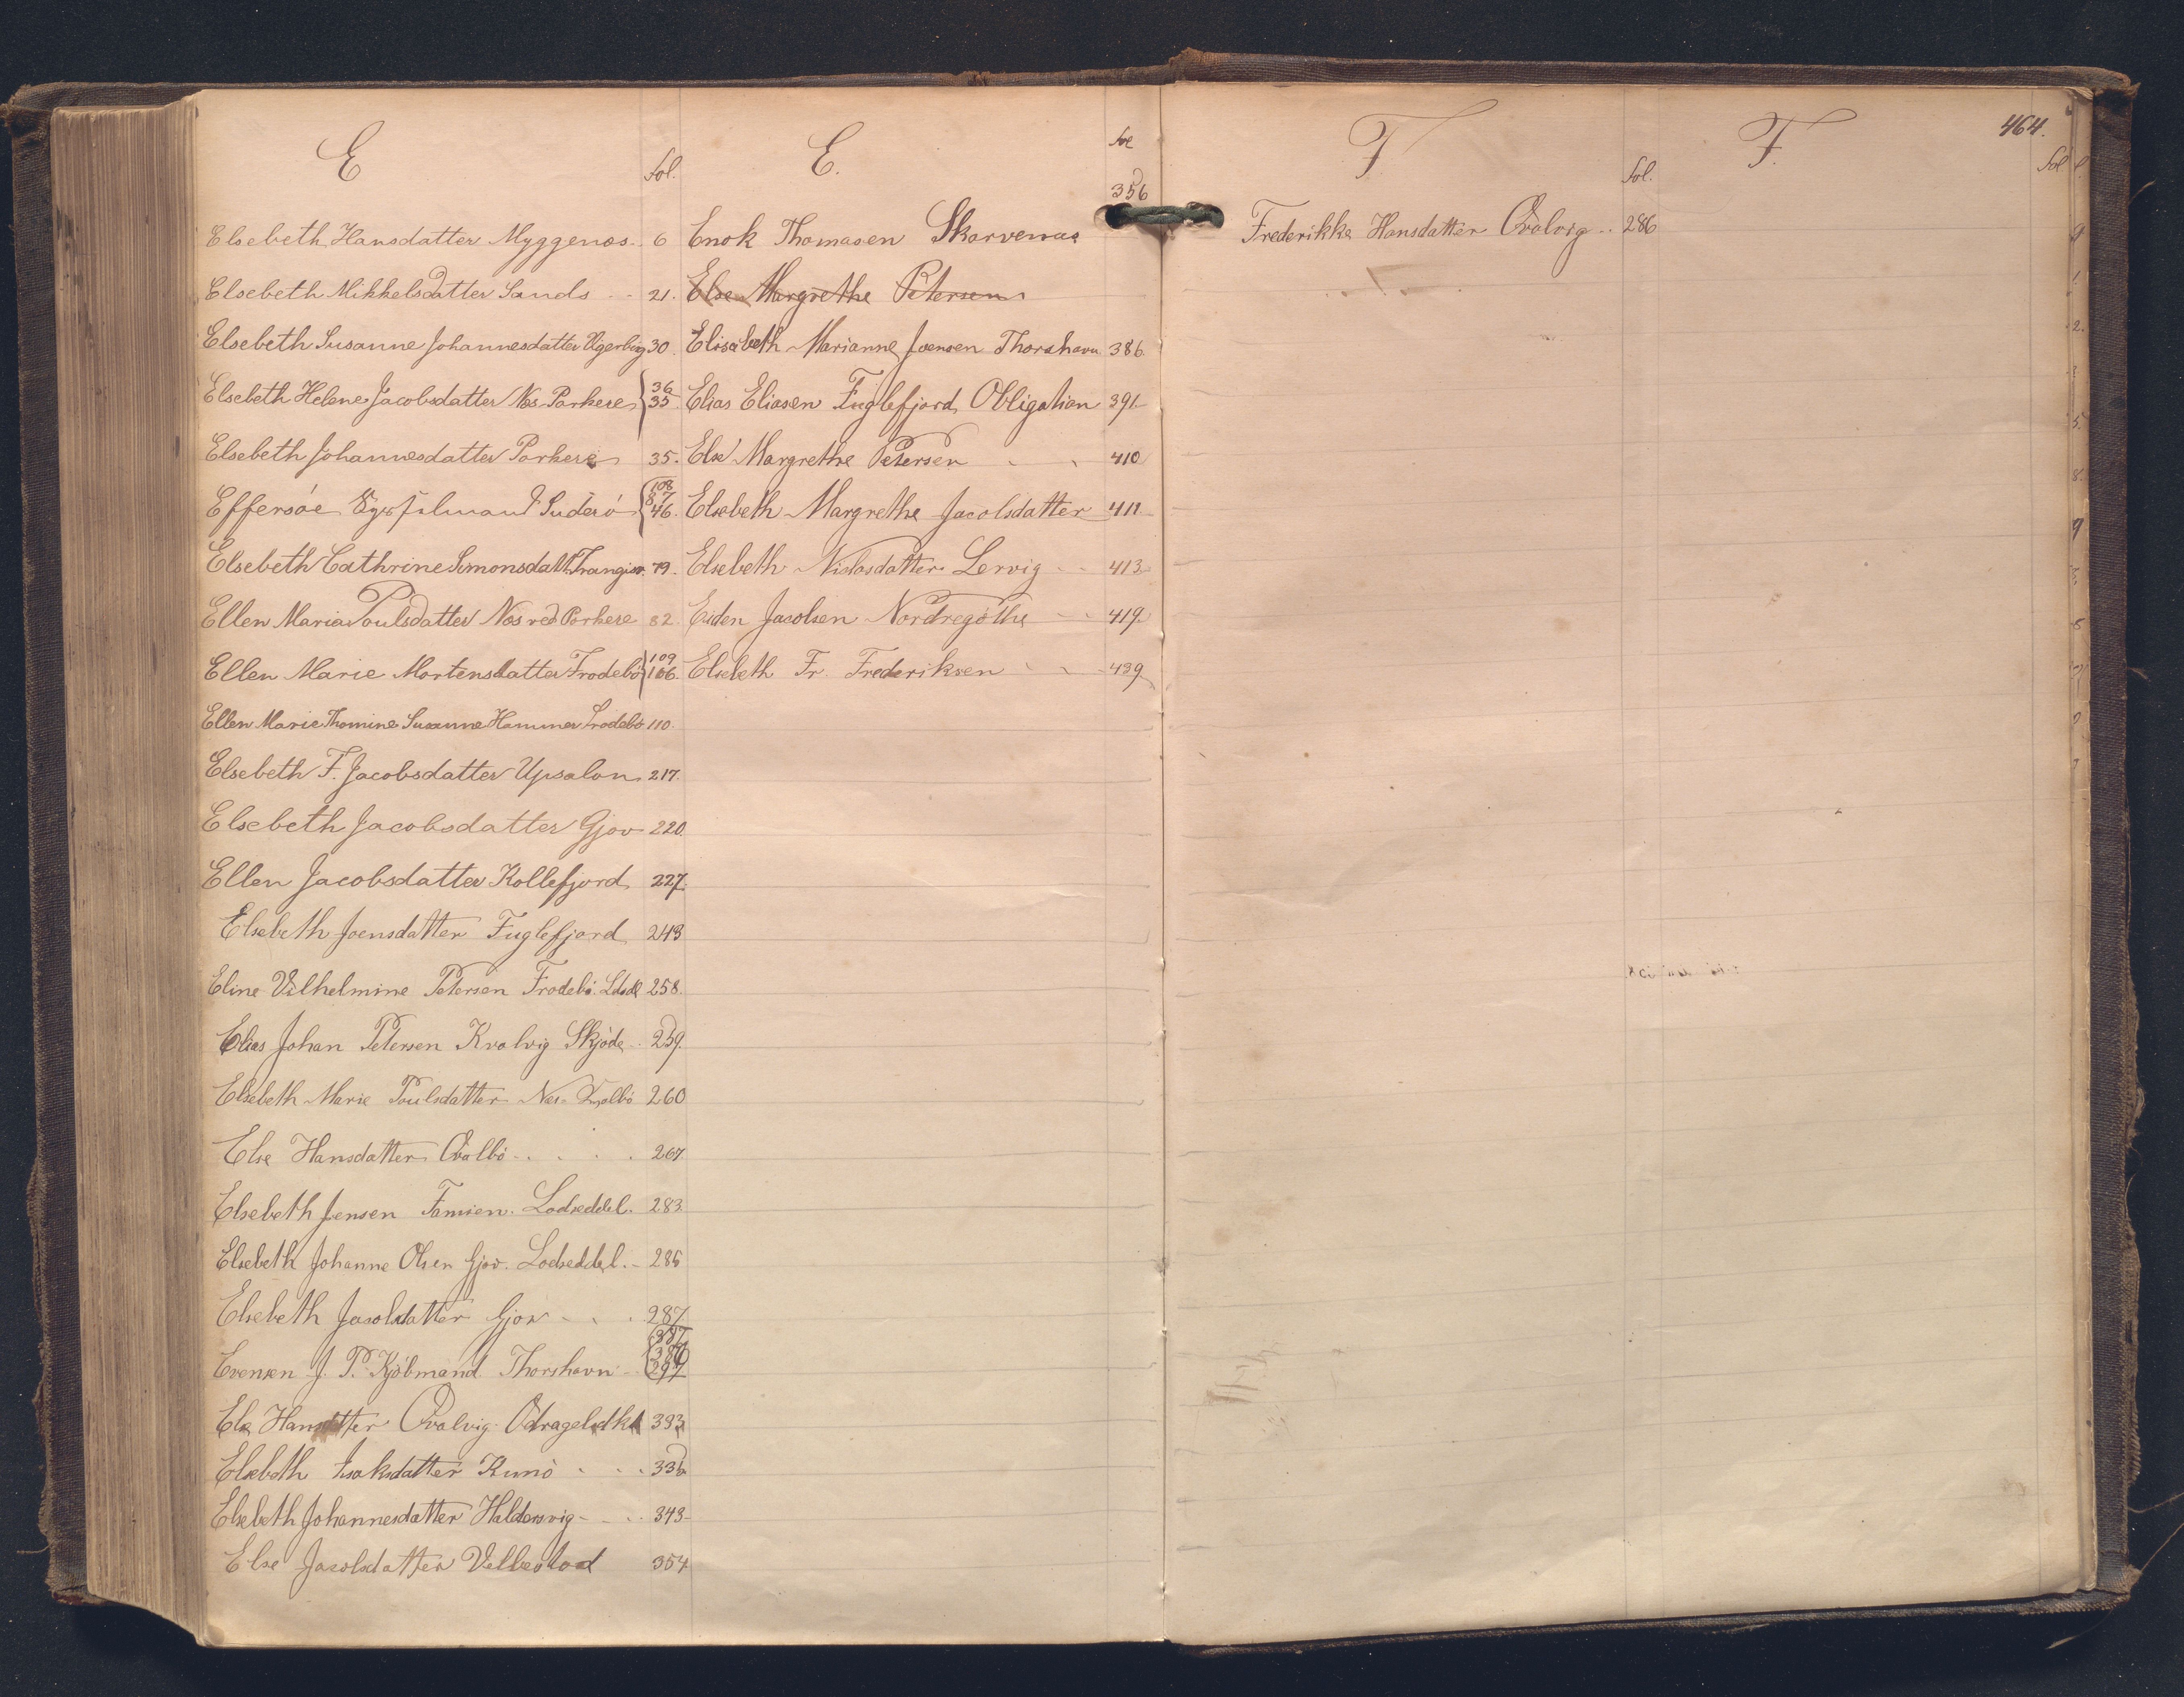 E
Fol.
Elsebeth Hansdatter Myggenæs 6
Elsebeth Mikkelsdatter Sands 21.
Elsebeth Susanne Johannesdatter 30.
Elsebeth Helene Jacobsdatter Næs Porkere 36 35
Elsebeth Johannesdatter Porkere 35.
Effersøe Suderö 108 87 46.
Elsebeth Cathrine Simonsdatt. Trangisv. 79.
Ellen Maria Poulsdatter Næs ved Porkere 82.
Ellen Marie Mortensdatter Frodebö 109 106.
Ellen Marie Thomine Susanne Hammer Frodebö 110.
Elsebeth F. Jacobsdatter Upsalon 217.
Elsebeth Jacobsdatter Gjov 220.
Ellen Jacobsdatter Kollefjord 227.
Elsebeth Joensdatter Fuglefjord 243
Eline Vilhelmine Petersen Frodebö. 258.
Elias Johan Petersen Kvalvig Skjöde 259.
Elsebeth Marie Poulsdatter Næs 260
Else Hansdatter Qvalbö 267.
Elsebeth Jensen Famien. Lodseddel. 283.
Elsebeth Johanne Olsen Gjov. Lodseddel. 285
Elsebeth Jacobsdatter Gjov 287.
Evensen J. P. Kjöbmand Thorshavn 387 386 297
Else Hansdatter Qvalvig 333
Elsebeth Isaksdatter Kunö 335
Elsebeth Johannesdatter Haldersvig 343
Else Jacobsdatter Velbestad 354
E.
Fol
356
Enok Thomasen Skarvenæs
Else Margrethe Petersen
Elisabeth Marianne Joensen Thorshavn 386.
Elias Eliasen Fuglefjord Obligation 391
Else Margrethe Petersen 410
Elsebeth Margrethe Jacobsdatter 411
Elsebeth Niclasdatter Lervig 413
Eiden Jacobsen Nordregöthe 419
Elsebeth Fr. Frederiksen 439
F
Fol.
Frederikke Hansdatter Qvalvig 286
F.
464.
Fol